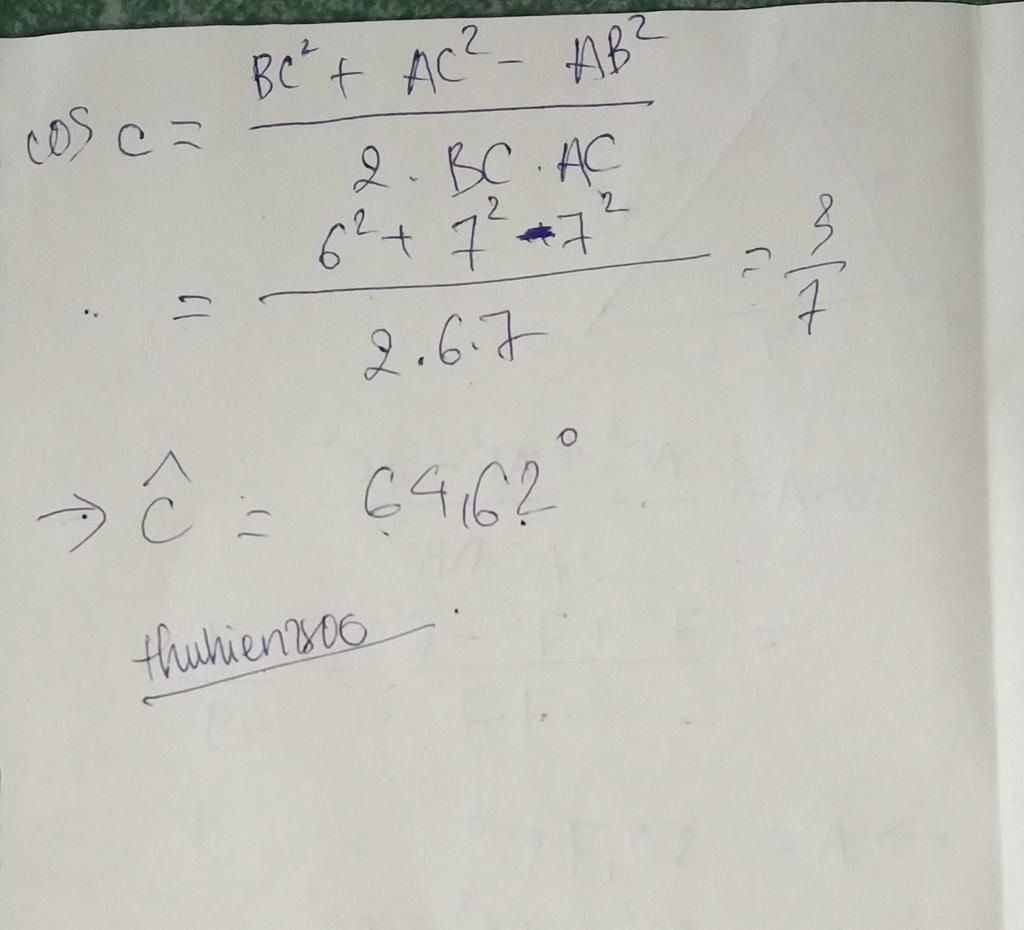 cos C = (BC² + AC² - AB²) / (2 . BC . AC)
= (6² + 7² - 7²) / (2.6.7) = 3/7
→ Ĉ = 64,62°
thuhien2806